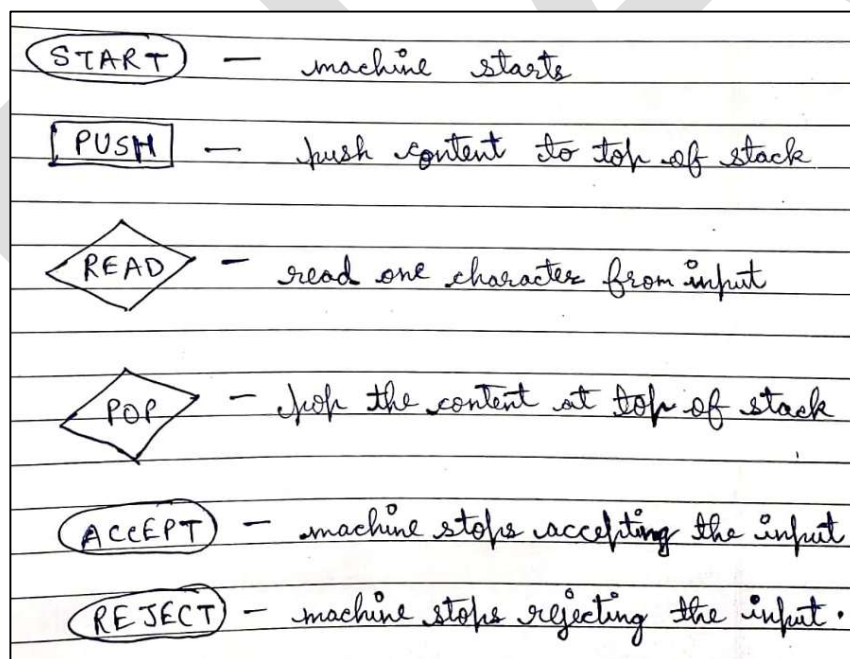 START - machine starts
PUSH - push content to top of stack
READ - read one character from input
POP - pop the content at top of stack
ACCEPT - machine stops accepting the input
REJECT - machine stops rejecting the input.